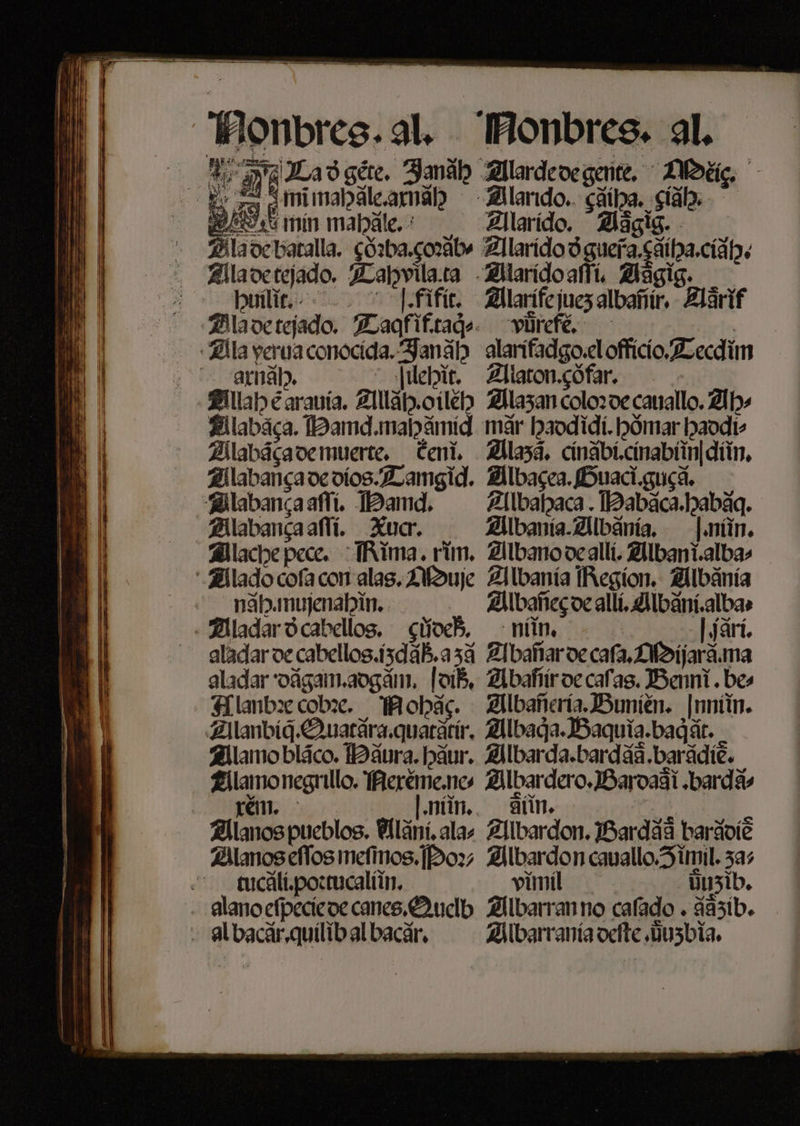 Nonbres. al.
La ð gẽte. Janãh
mi mahále.arnáh
min mahále.
Ala de batalla. çórba.coráb⸗
Ala de tejado. Tahvila.ta
huilit. [.fifit.
Ala de tejado. Taqfif.taq⸗
Ala yerua conocida. Janáh
arnáh. [ilchit.
Allah é arauía. Alláh.oiléh
Alabáça. Hamd.mahámid
Alabáça de muerte. teni.
Alabança de dios. Tamgid.
Alabança assi. Hamd.
Alabança assi. Xucr.
Alache pece. Rima. rim.
Alado cosa con alas. Muje
náh.mujenahin.
Aladar ð cabellos. çúdch.
aladar de cabellos.
aladar dágam.adgám.
Alanbre cobre. Nohác.
Alanbiq. Quatára.quatátir.
Alamo bláco. Háura. háur.
Alamo negrillo. Nexéme.ne⸗
xém. [.niin.
Alanos pueblos. Aláni. ala⸗
Alanos essos mesmos. Por⸗
tucáli.portucaliin.
alano especie de canes. Quelb
al bacár.quilib al bacár.
Nonbres. al.
Alarde de gente.
Alarido. çáiha. çiáh.
Alarído. Alágig.
Alarído ð guerra. çáiha.ciáh.
Alarido assi. Alágig.
Alarife juez albañir. Alárif
vúrefé.
alarifadgo. el officio. Tecdim
Alaton. çófar.
Alazan color de cauallo. Ah⸗
már haodidí. hómar haodi⸗
Alazá. cinábi.cinabiin [diin.
Albacea. Guaci.guçá.
Albahaca. Habáca.habáq.
Albania. Albánia. [.niin.
Albano de allí. Albani.alba⸗
Albanía Región. Albánia
Albañeç de allí. Albáni.alba⸗
niin. [jári.
Albañar de casa. Mijará.ma
Albañir de casas. Benni. be⸗
Albañería. Bunién. [nniin.
Albaqa. Baquia.baqát.
Albarda.bardáá.barádié.
Albardero. Baroadi .bardá⸗
áiin.
Albardon. Bardáá barádié
Albardon cauallo. Zimil. za⸗
vimil úuzib.
Albarran no casado . áázib.
Albarranía deste .úuzbia.